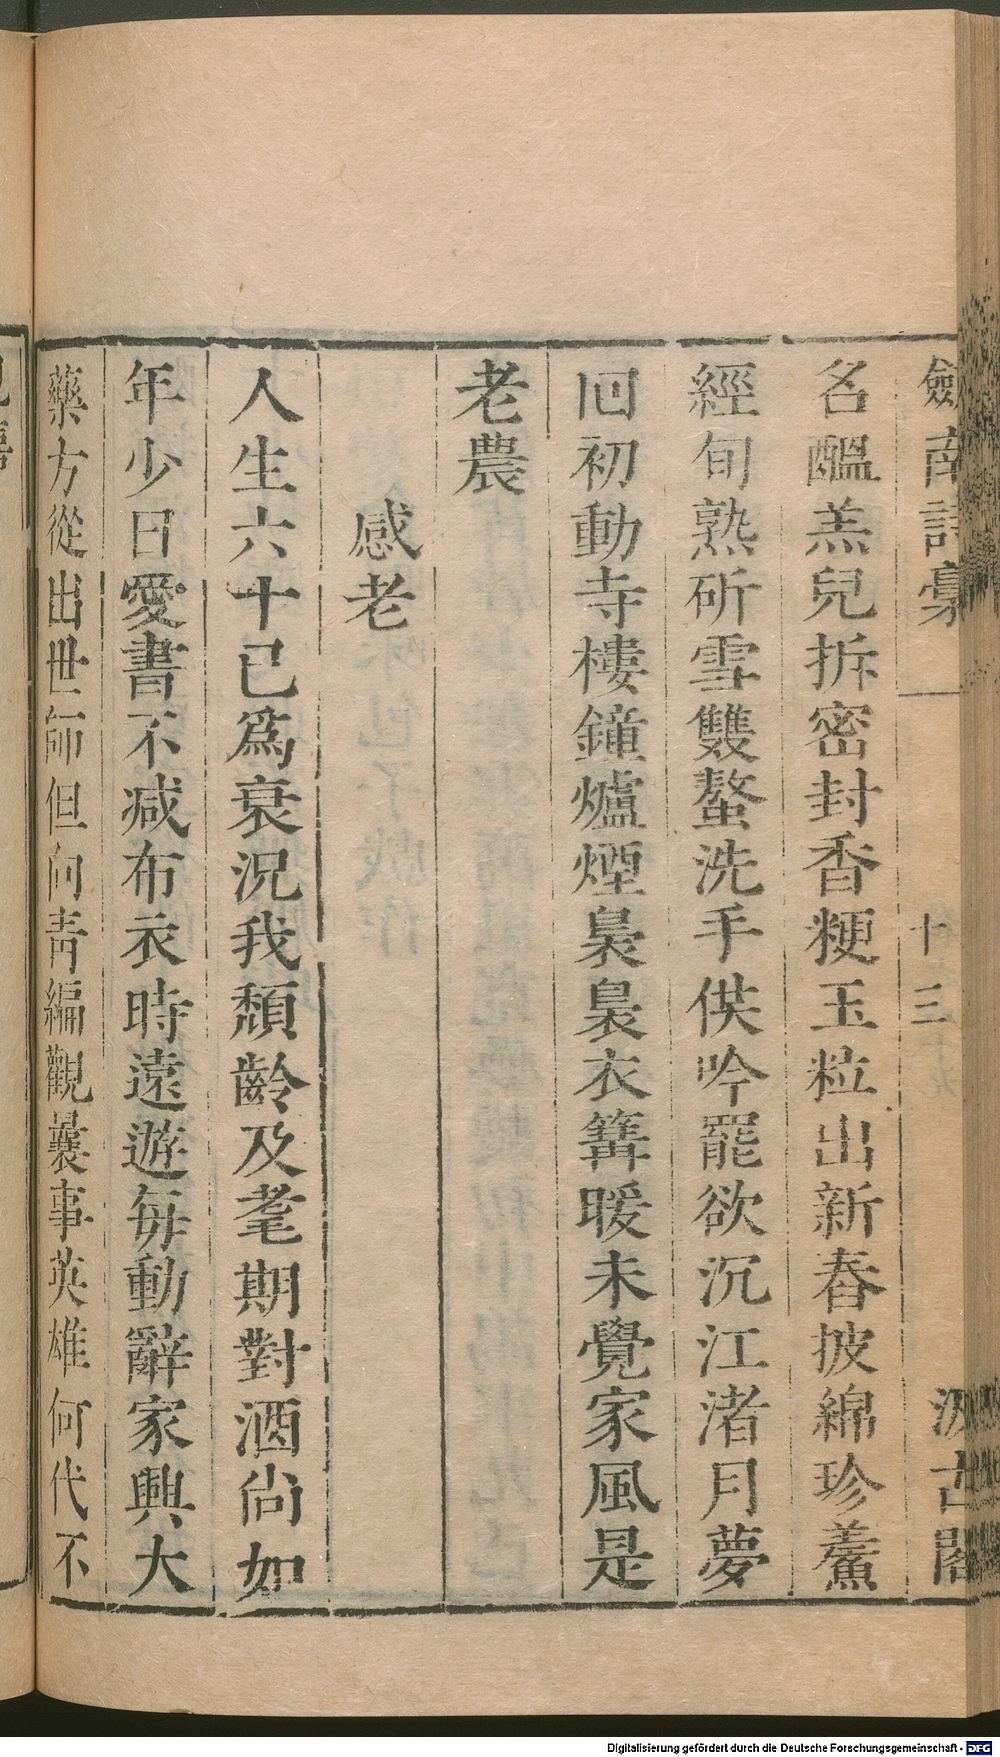 劍南詩稾 十三 汲古閣
名醞羔兒拆密封香粳玉粒出新舂披綿珍鱟
經旬熟斫雪雙螯洗手供吟罷欲沉江渚月夢
回初動寺樓鐘爐煙裊裊衣篝暖未覺家風是
老農
感老
人生六十已爲衰況我頹齡及耄期對酒尚如
年少日愛書不减布衣時遠遊每動辭家興大
藥方從出世師但向青編觀曩事英雄何代不
Digitalisierung gefördert durch die Deutsche Forschungsgemeinschaft - DFG